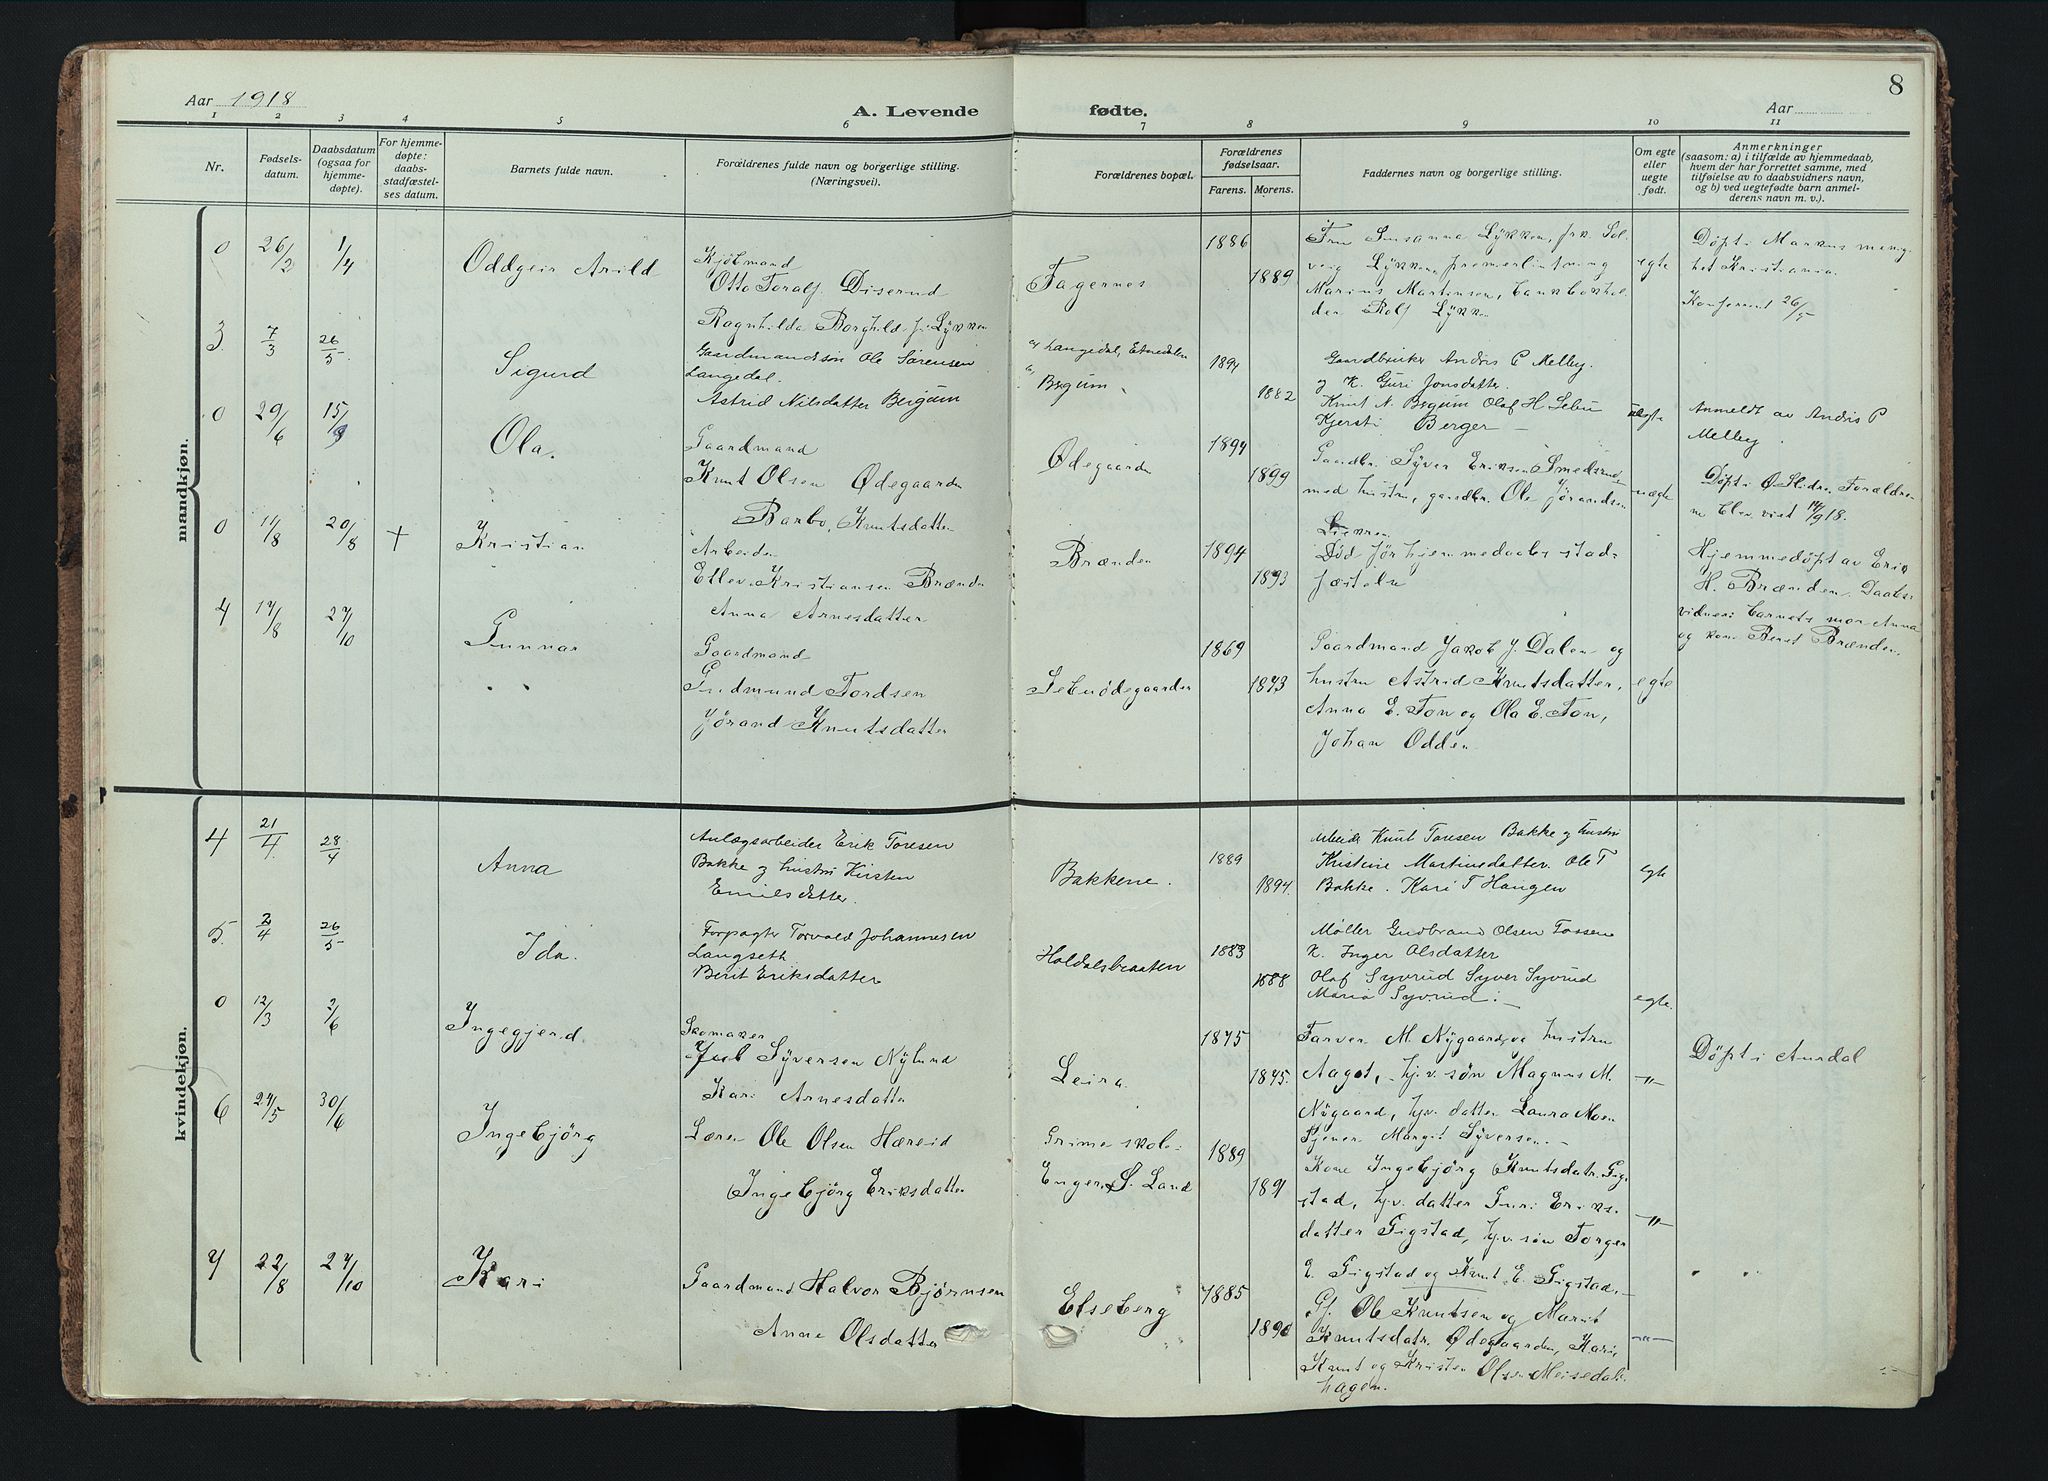 8
Aar 1918
A. Levende
fødte.
Aar
1 2 3 4 5 6 7 8 9 10 11
Nr.
Fødsels-
datum.
Daabsdatum
(ogsaa for
hjemme-
døpte).
For hjemme-
døpte:
daabs-
stadfæstel-
ses datum.
Barnets fulde navn.
Forældrenes fulde navn og borgerlige stilling.
(Næringsvei).
Forældrenes bopæl.
Forældrenes
fødselsaar.
Farens. Morens.
Faddernes navn og borgerlige stilling.
Om egte
eller
uegte
født.
Anmerkninger
(saasom: a) i tilfælde av hjemmedaab,
hvem der har forrettet samme, med
tilføielse av to daabsvidners navn,
og b) ved uegtefødte barn anmel-
derens navn m. v.).
mandkjøn.
0 26/2 1/4 Oddgeir Arild
Kjøbmand
Otto Toralf Diserud
Ragnhilda Borghild f. Lykken
Fagernes
1886
1889
Fru Susanna Lykken, frk. Sol-
veig Lykken, premierlintning
Marius Martinsen, bankbokhol-
der Rolf Lykken
egte
Døpt i Markus menig-
het Kristiania.
Konferert 26/5
3 7/3 26/5 Sigurd
Gaardmandssøn Ole Sørensen
Langedal.
Astrid Nilsdatter Bergum
Langedal, Etnedalen
Bergum
1894
1882
Gaardbruker Andris P Melby
og K. Guri Jonsdatter.
Knut N. Bergum Olaf H Lebu
Kjersti Berger
uegte
Anmeldt av Andris P
Melby
0 29/6 15/9 Ola.
Gaardmand
Knut Olsen Ødegaarden
Barbo Knutsdatter
Ødegaarden
1894
1899
Gaardbr. Syver Eriksen Smedsrud
med hustru, gaardbr. Ole Jørandsen
Lieren
egte
Døpt i Ø. Slidre. Foreldre-
ne blev viet 14/9 18.
0 11/8 20/8 + Kristian
Arbeider
Ellev Kristiansen Brænden
Anna Arnesdatter
Brænden
1894
1893
Død før hjemmedaabs stad-
fæstelse
Hjemmedøpt av Erik
H. Brænden. Daabs-
vidner: barnets mor Anna
og kone Berit Brænden.
4 17/8 27/10 Gunnar
Gaardmand
Gudmund Tordsen
Jørand Knutsdatter
Lebuødegaarden
1869
1873
Gaardmand Jakob J. Dalen og
hustru Astrid Knutsdatter,
Anna E. Ton og Ola E. Ton,
Johan Odden
egte
kvindekjøn.
4 21/4 28/4 Anna
Anlægsarbeider Erik Toresen
Bakke og hustru Kirsten
Emilsdatter.
Bakkene.
1889
1894.
Arbeider Knut Toresen Bakke og hustru
Kristine Martinsdatter. Ole T
Bakke. Kari T Haugen
egte
5. 2/4 26/5 Ida.
Forpagter Torvald Johannesen
Langseth
Berit Eriksdatter
Haldalsbraaten
1883
1888
Møller Gudbrand Olsen Fossen
K. Inger Olsdatter
Olaf Syvrud Syver Syvrud
Maria Syvrud
egte.
0 12/3 2/6 Ingegjerd.
Skomaker
Juel Syversen Nylund
Kari Arnesdatter
Leira.
1875
1875.
Farver M. Nygaard og hustru
Aagot, hj.v. søn Magnus M.
Nygaard, hj.v. datter Laura Moen
Tjener Margit Syversen.
-"-
Døpt i Aurdal
6 27/5 30/6 Ingebjørg
Lærer Ole Olsen Hæreid
Ingebjørg Eriksdatter
Grime skole
Enger S. Land
1889
1891
Kone Ingebjørg Knutsdatr. Gig-
stad, hj.v. datter Guri Eriks-
datter Gigstad, hj.v. søn Torger
E. Gigstad og Knut E. Gigstad.
-"-
7 22/8 27/10 Kari
Gaardmand Halvor Bjørnsen
Anne Olsdatter
Elseberg
1885
1890
Gf. Ole Knutsen og Marit
Knutsdatr. Ødegaarden, Kari,
Knut og Kristen Olsen Meisedals-
hagen.
-"-